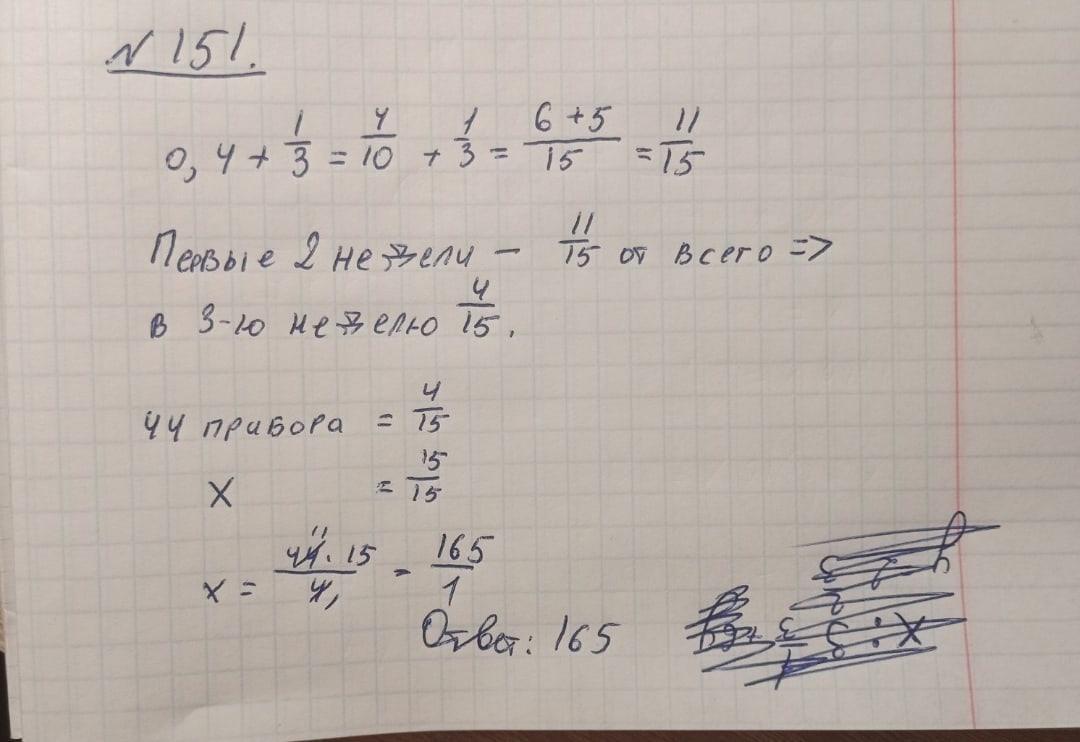 N 151.
0,4 + 1/3 = 4/10 + 1/3 = (6+5)/15 = 11/15
Первые 2 недели – 11/15 от всего =>
в 3-ю неделю 4/15.
44 прибора = 4/15
x = 15/15
x = (44 · 15)/4 = 165/1
Ответ: 165